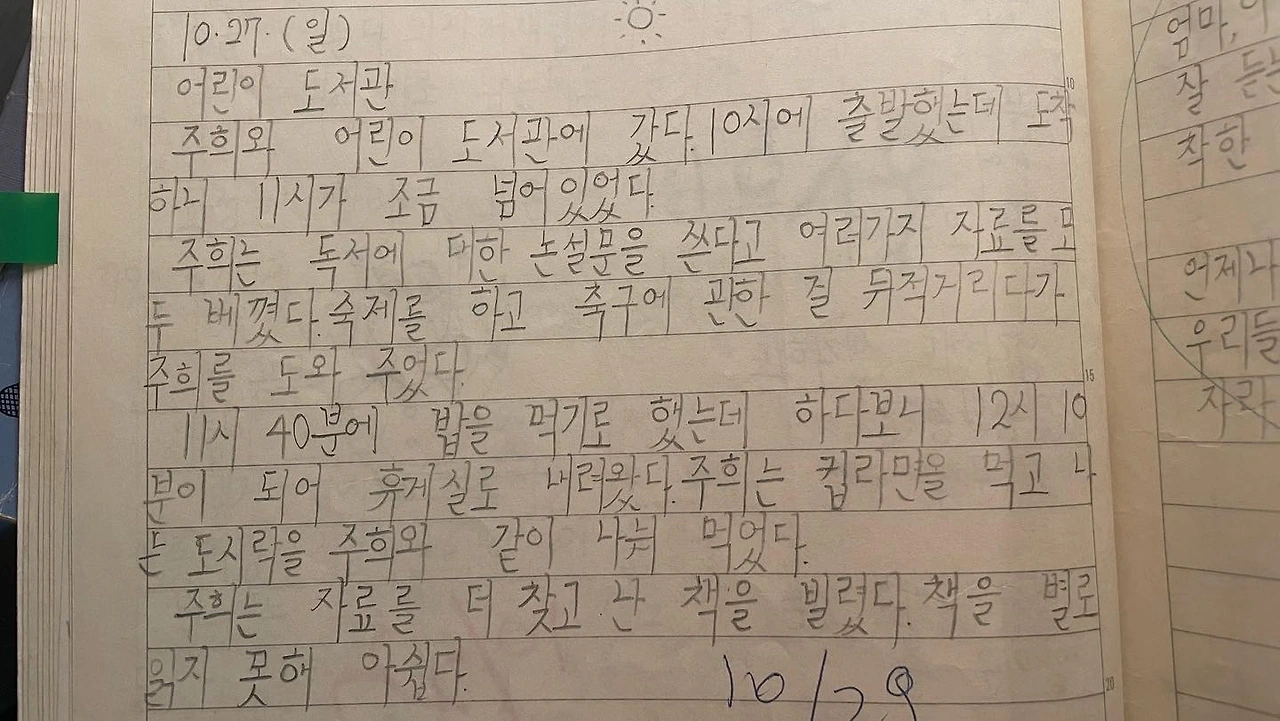 10.27.(일)
어린이 도서관
주희와 어린이 도서관에 갔다. 10시에 출발했는데 도착
하니 11시가 조금 넘어있었다.
주희는 독서에 대한 논설문을 쓴다고 여러가지 자료를 모
두 베꼈다. 숙제를 하고 축구에 관한 걸 뒤적거리다가
주희를 도와 주었다.
11시 40분에 밥을 먹기로 했는데 하다보니 12시 10
분이 되어 휴게실로 내려왔다. 주희는 컵라면을 먹고 나
는 도시락을 주희와 같이 나눠 먹었다.
주희는 자료를 더 찾고 난 책을 빌렸다. 책을 별로
읽지 못해 아쉽다.
10/29
엄마,
잘 듣는
착한
언제나
우리들
자라
10
15
20